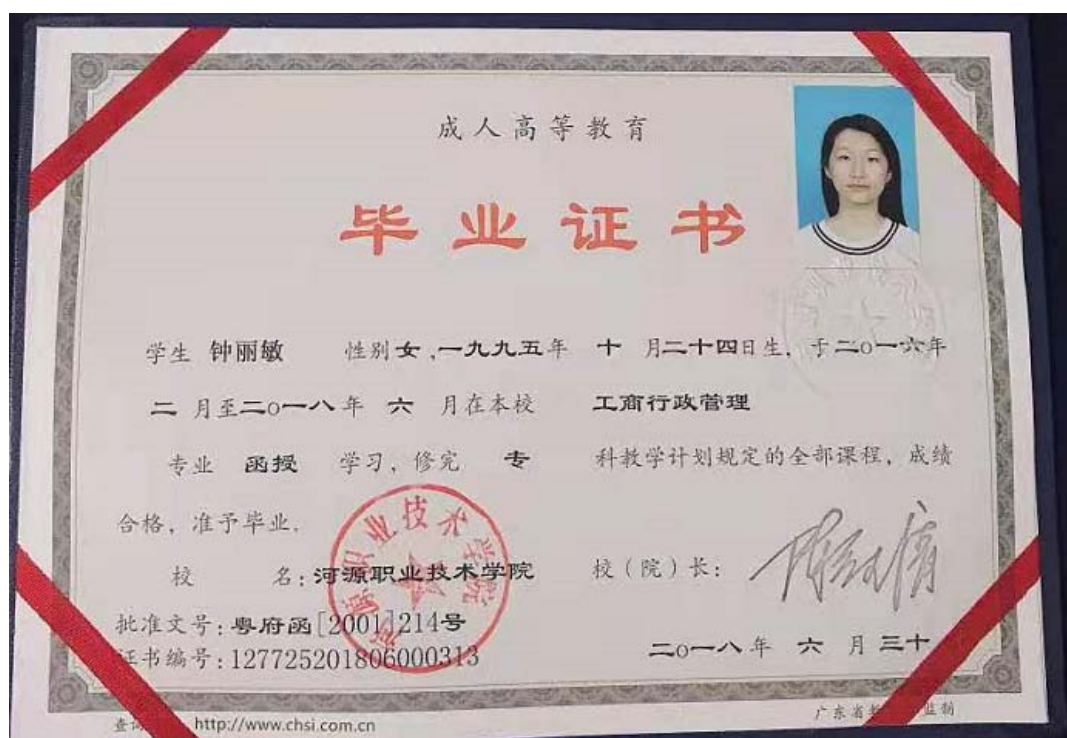 成人高等教育
毕业证书
学生 钟丽敏 性别 女,一九九五年 十 月二十四日生, 于二○一六年
二 月至二○一八年 六 月在本校 工商行政管理
专业 函授 学习, 修完 专 科教学计划规定的全部课程, 成绩
合格, 准予毕业.
校 名: 河源职业技术学院 校(院)长:
批准文号: 粤府函[2001]214号
证书编号: 127725201806000313 二○一八年 六 月 三十
河源职业技术学院
http://www.chsi.com.cn
广东省 监制